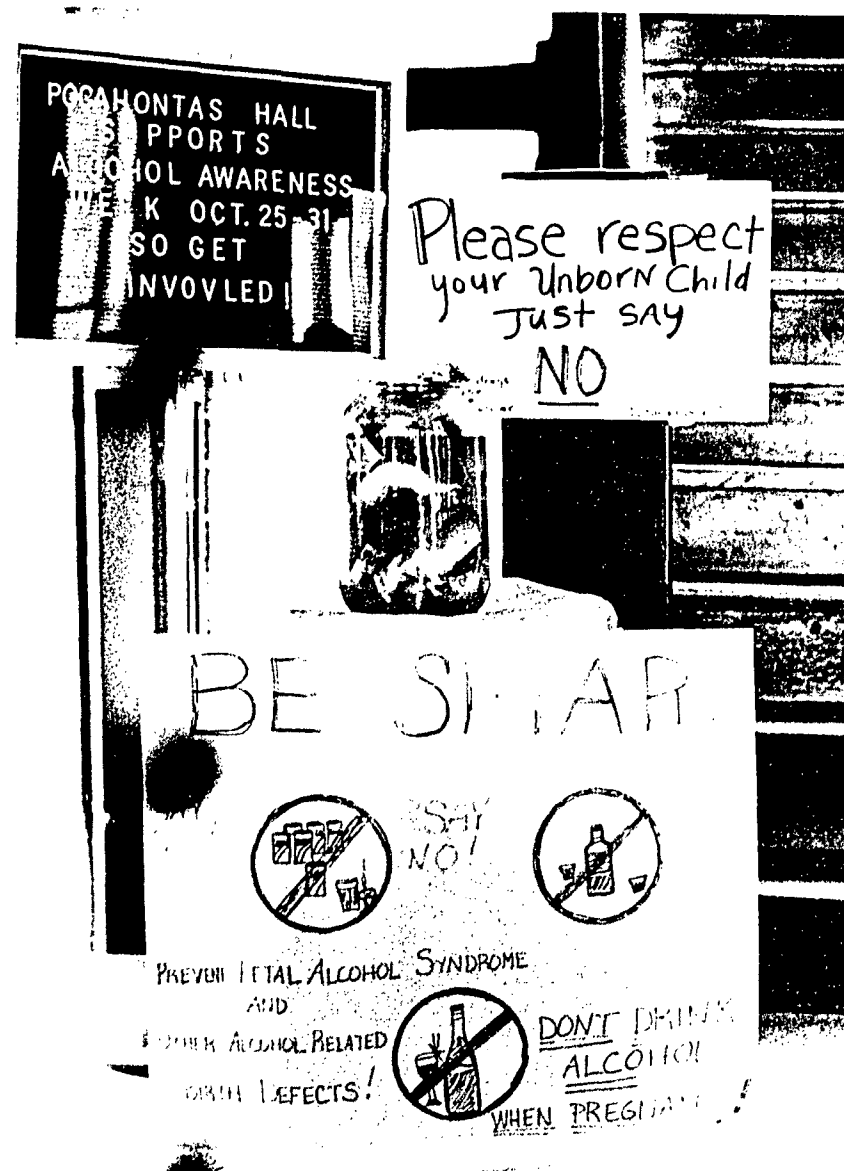 POCAHONTAS HALL
S PPORTS
ALCOHOL AWARENESS
WE K OCT. 25-31
SO GET
INVOVLED!
Please respect
your Unborn Child
Just SAY
NO
BE SMAR
SAY
NO!
PREVENT FETAL ALCOHOL SYNDROME
AND
OTHER ALCOHOL RELATED
BIRTH DEFECTS!
DON'T DRINK
ALCOHOL
WHEN PREGNANT!